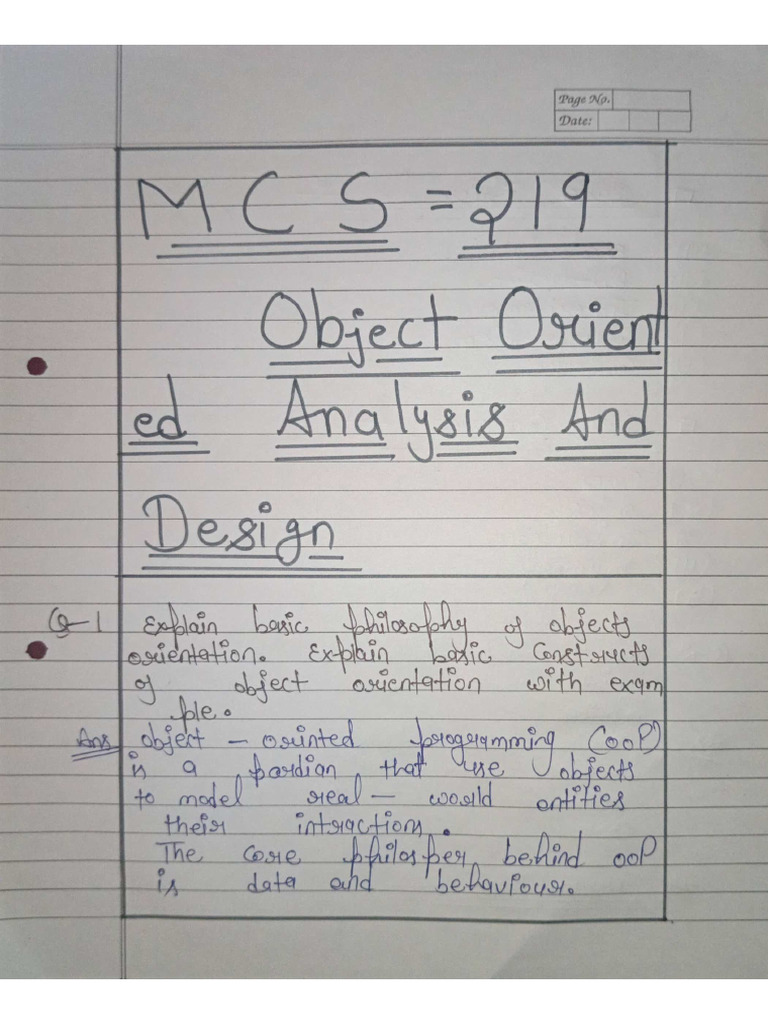 Page No.
Date:
MCS = 219
Object Orient
ed Analysis And
Design
Q-1 Explain basic philosophy of objects
orientation. Explain basic constructs
of object orientation with exam
ple.
Ans object - orinted programming (OOP)
is a pardian that use objects
to model real - world entities
their intractions.
The core philosper behind OOP
is data and behaviour.